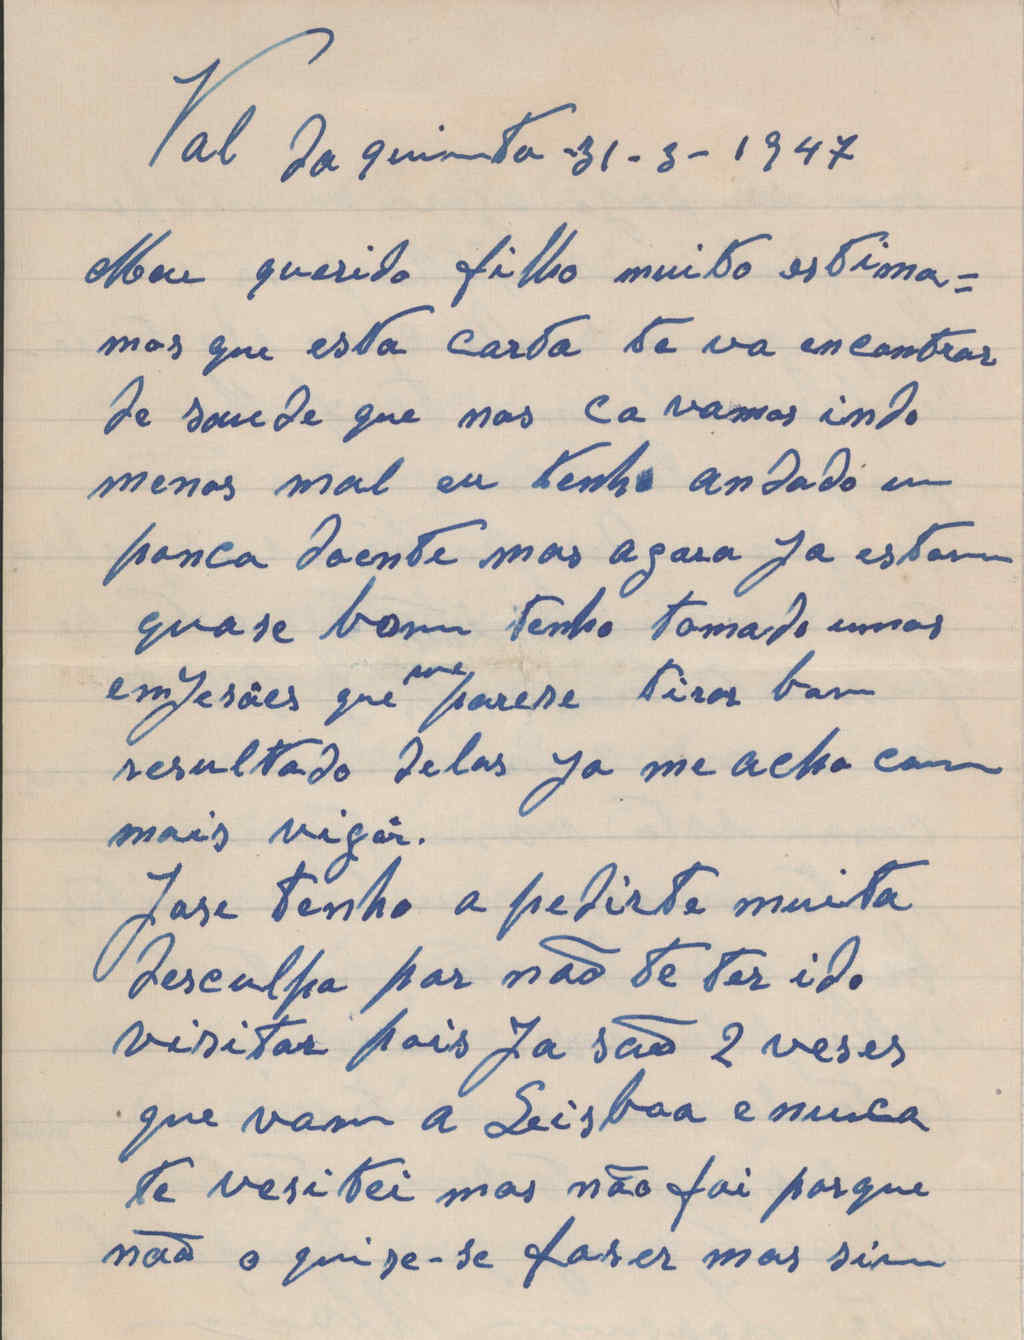 Val da quinta -31-3-1947
Meu querido filho muito estima=
mos que esta carta te va encontrar
de saude que nos ca vamos indo
menos mal eu tenho andado um
pouco doente mas agora ja estou
quase bom tenho tomado umas
emjesões que me parese tirar bom
resultado delas ja me acho com
mais vigôr.
Jose tenho a pedirte muita
desculpa por não te ter ido
visitar pois ja são 2 veses
que vam a Leisboa e nunca
te vesitei mas não foi porque
não o quise-se faser mas sim